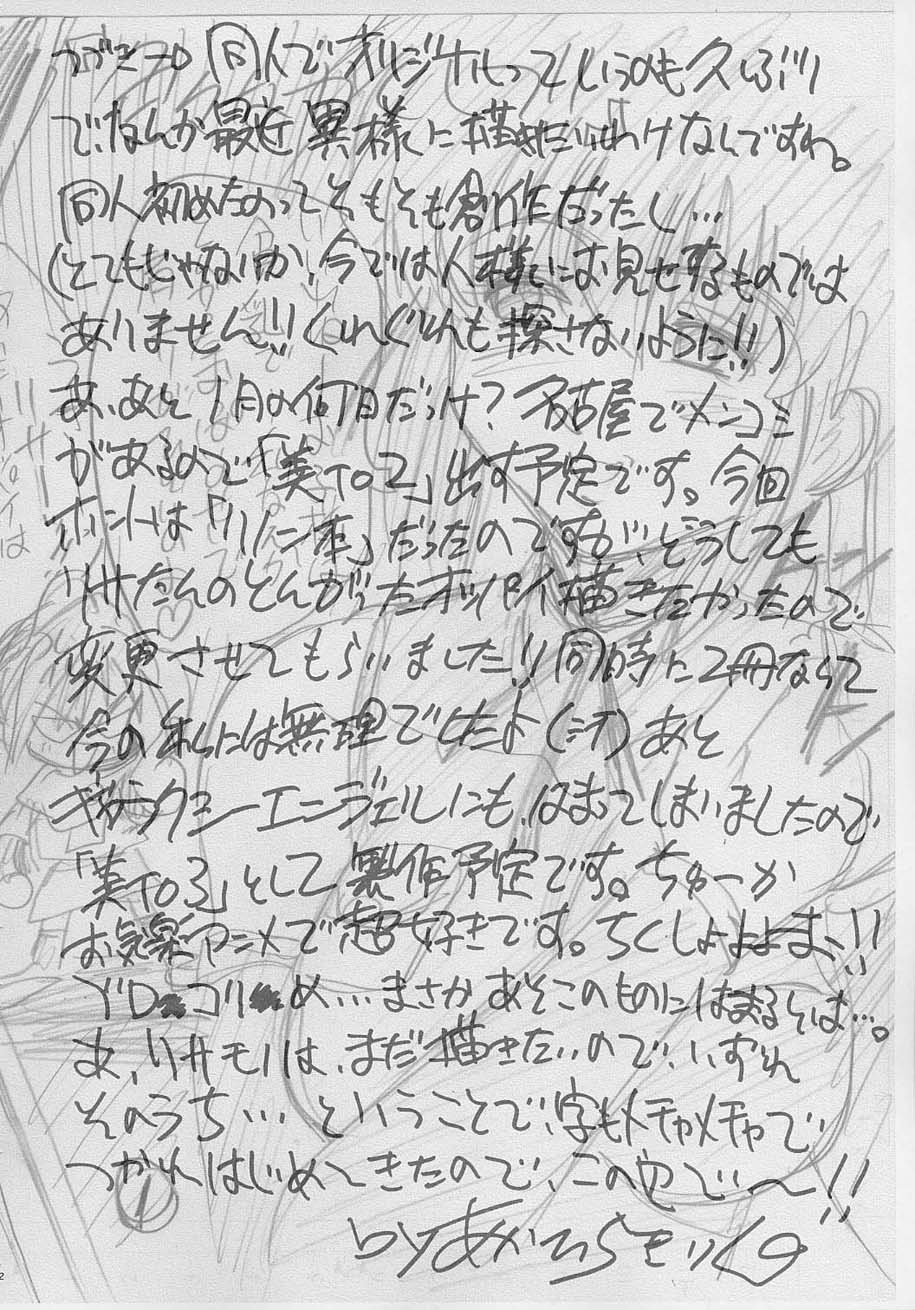 同人でオリジナルっていうのも久しぶり
でなんか最近異様に描きたいわけなんですわ。
同人初めたのってそもそも創作だったし…
(とてもじゃないが、今では人様にお見せするものでは
ありません!!くれぐれも探さないように!!)
あ、あと1月の何日だっけ?名古屋でメンコミ
があるので「美TO2」出す予定です。今回
ホントは「リノン本」だったのですが、どうしても
リサたんのとんがったオッパイ描きたかったので
変更させてもらいました!!同時に2冊なんて
今の私には無理でしたよ(汗)あと
ギャラクシーエンジェルにも、はまってしまいましたので
「美TO3」として製作予定です。ちゅーか
お気楽アニメで超好きです。ちくしょよよよま、!!
め…まさかあそこのものにはまるとは…。
あ、リサモノは、まだ描きたいので、いずれ
そのうち…ということで、字もメチャメチャで
つかれはじめてきたので、この辺で〜!!
byあかひらきりん
2